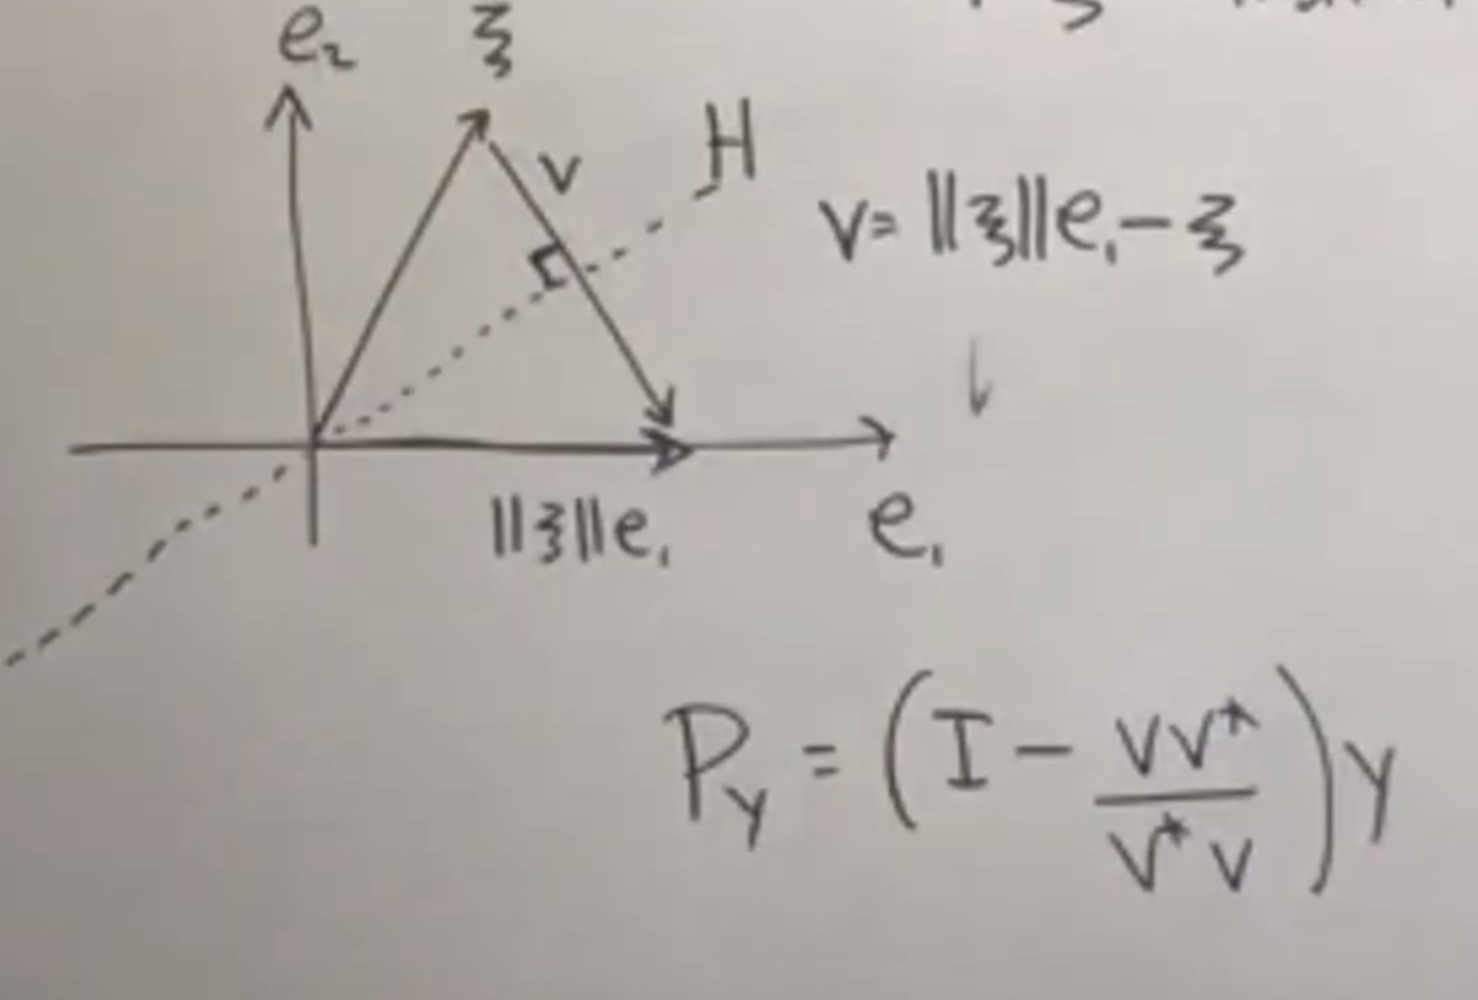 e₂
ξ
H
v
v = ||ξ||e₁ - ξ
||ξ||e₁
e₁
Py = (I - vv*/v*v)y